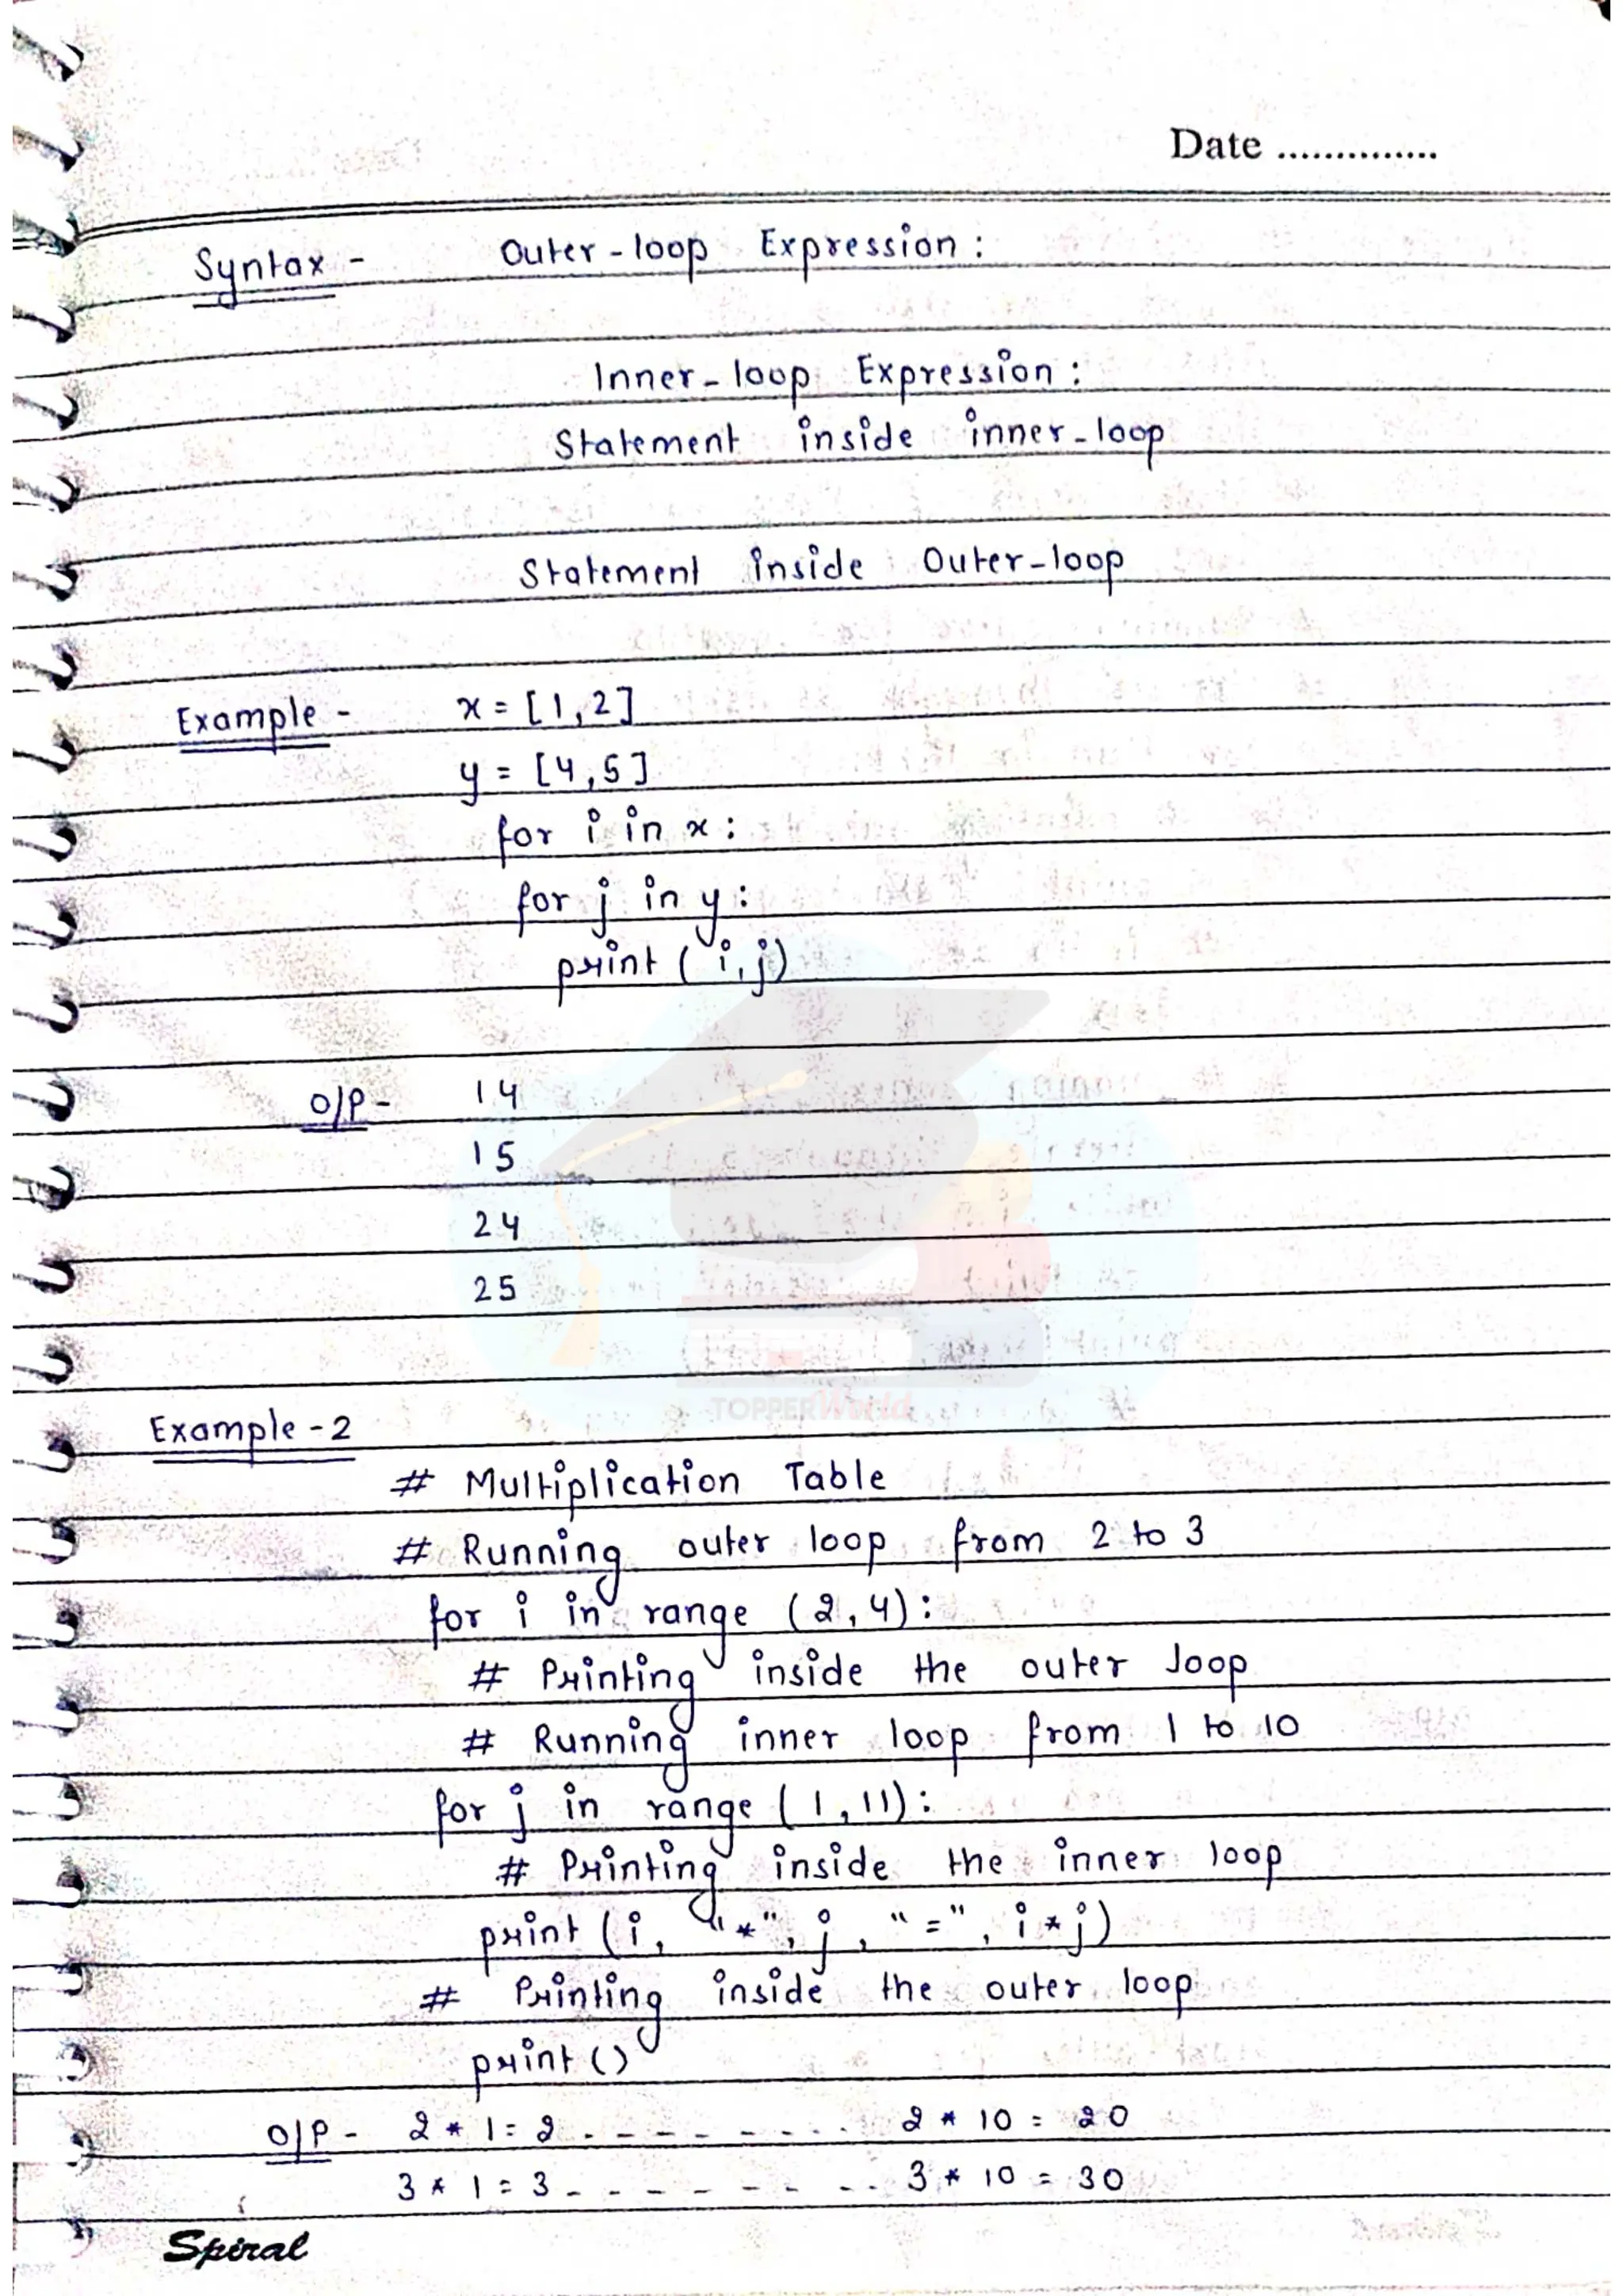 Date ..............
Syntax - Outer-loop Expression :
Inner-loop Expression :
Statement inside inner-loop
Statement inside Outer-loop
Example - x = [1,2]
y = [4,5]
for i in x :
for j in y :
print ( i,j)
O/P - 1 4
1 5
2 4
2 5
TOPPERWorld
Example - 2
# Multiplication Table
# Running outer loop from 2 to 3
for i in range (2,4) :
# Printing inside the outer loop
# Running inner loop from 1 to 10
for j in range (1,11) :
# Printing inside the inner loop
print (i, "*", j, "=", i*j)
# Printing inside the outer loop
print ()
O/P - 2 * 1 = 2 - - - - - - - - - 2 * 10 = 20
3 * 1 = 3 - - - - - - - - - 3 * 10 = 30
Spiral